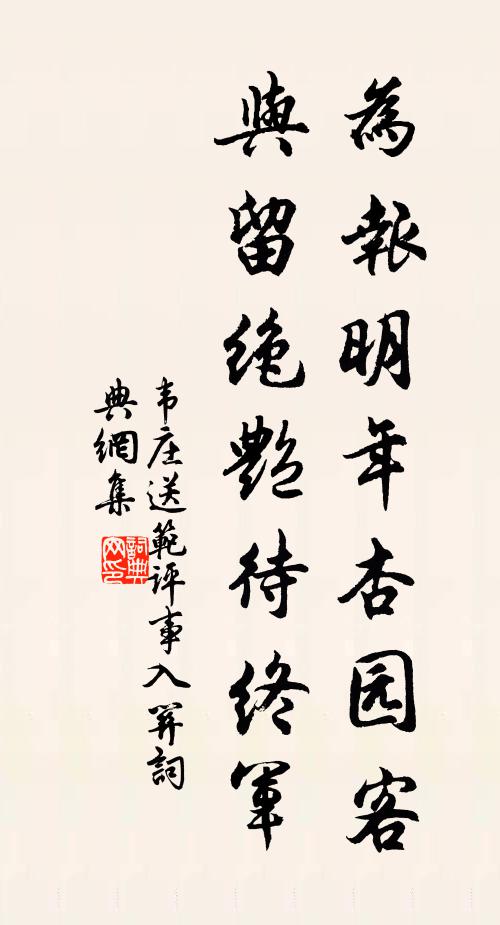 為報明年杏园客
與留绝艷待终軍
韦庄送範评事入關詞
典網集
詞典网印